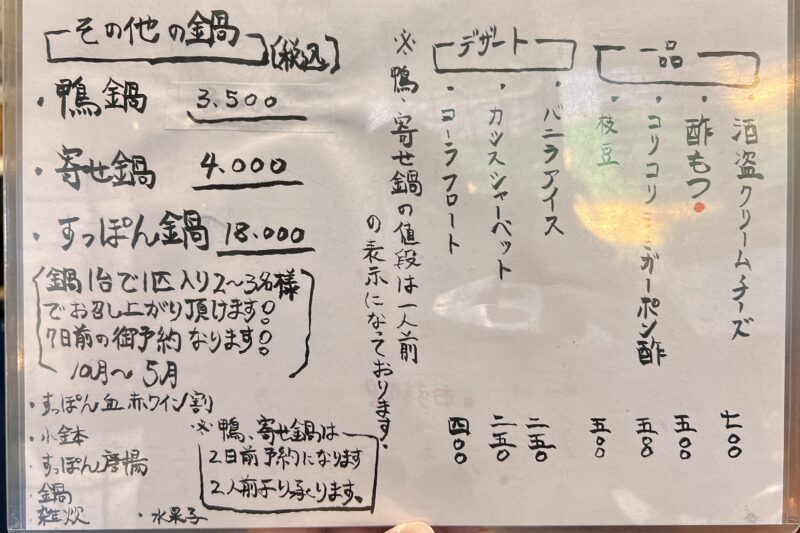 その他の鍋
(税込)
・鴨鍋 3.500
・寄せ鍋 4.000
・すっぽん鍋 18.000
鍋1台で1匹入り2〜3名様
でお召し上がり頂けます!
7日前の御予約なります!
10月〜5月
・すっぽん血赤ワイン割
・小鉢
・すっぽん唐揚
・鍋
・雑炊 ・水菓子
※鴨、寄せ鍋は
2日前予約になります
2人前より承ります。
※鴨、寄せ鍋の値段は一人前
の表示になっております.
デザート
・バニラアイス 二五〇
・カシスシャーベット 二五〇
・コーラフロート 四〇〇
一品
・酒盗クリームチーズ 七〇〇
・酢もつ 五〇〇
・コリコリミミガーポン酢 五〇〇
・枝豆 五〇〇